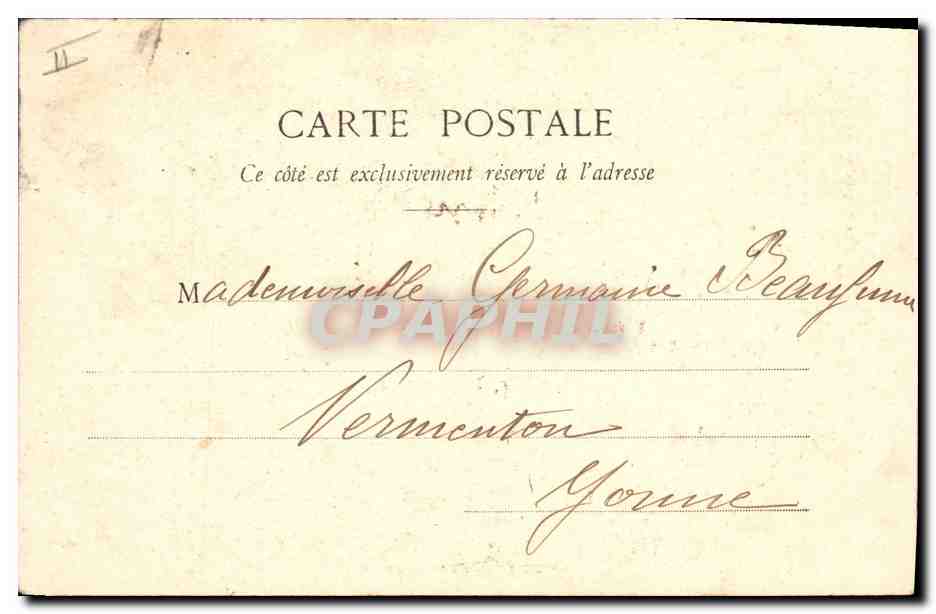 II
CARTE POSTALE
Ce côté est exclusivement réservé à l'adresse
Mademoiselle Germaine
CPAPHIL
Vermenton
Yonne